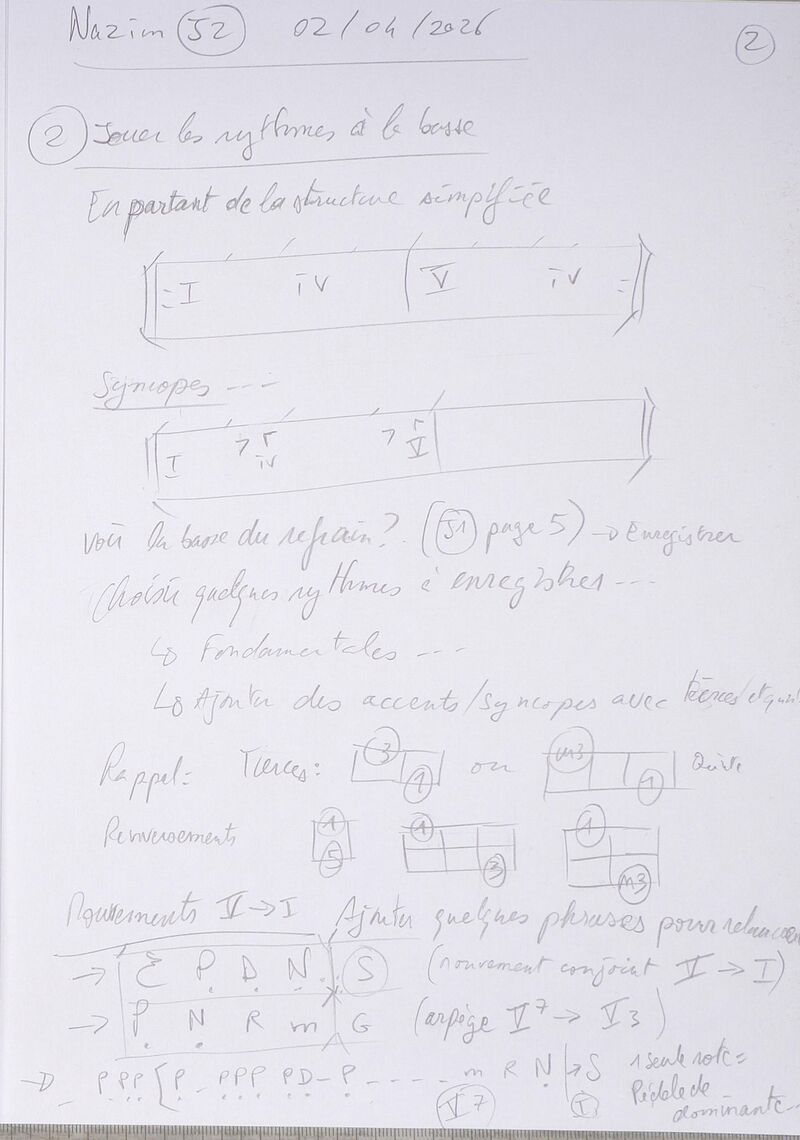 Nazim J2 02/04/2026
2
2 Jouer les rythmes à la basse
En partant de la structure simplifiée
I iv V iv
Syncopes ---
I iv V
voir la basse du refrain? (J1 page 5) → Enregistrer
Choisir quelques rythmes à enregistrer ---
↳ Fondamentales ---
↳ Ajouter des accents/syncopes avec tierces/et
Rappel: Tierces: 3 1 ou m3 1 Quinte
Renversements 1 5 1 3 1 m3
Mouvements V → I Ajouter quelques phrases pour
→ P D N S (mouvement conjoint V → I)
→ P N R m G (arpège V7 → V3)
→ P P P [P - P P P P D - P - - - - m R N → S 1 seule note =
V7 I Pédale de
dominante